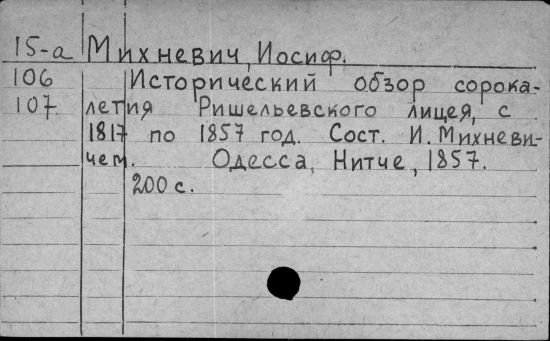 15-а Михневич, Иосиф.
106 Исторический обзор сорока-
107 летия Ришельевского лицея, с
1817 по 1857 год. Сост. И. Михневи-
чем. Одесса, Нитче, 1857.
200 с.